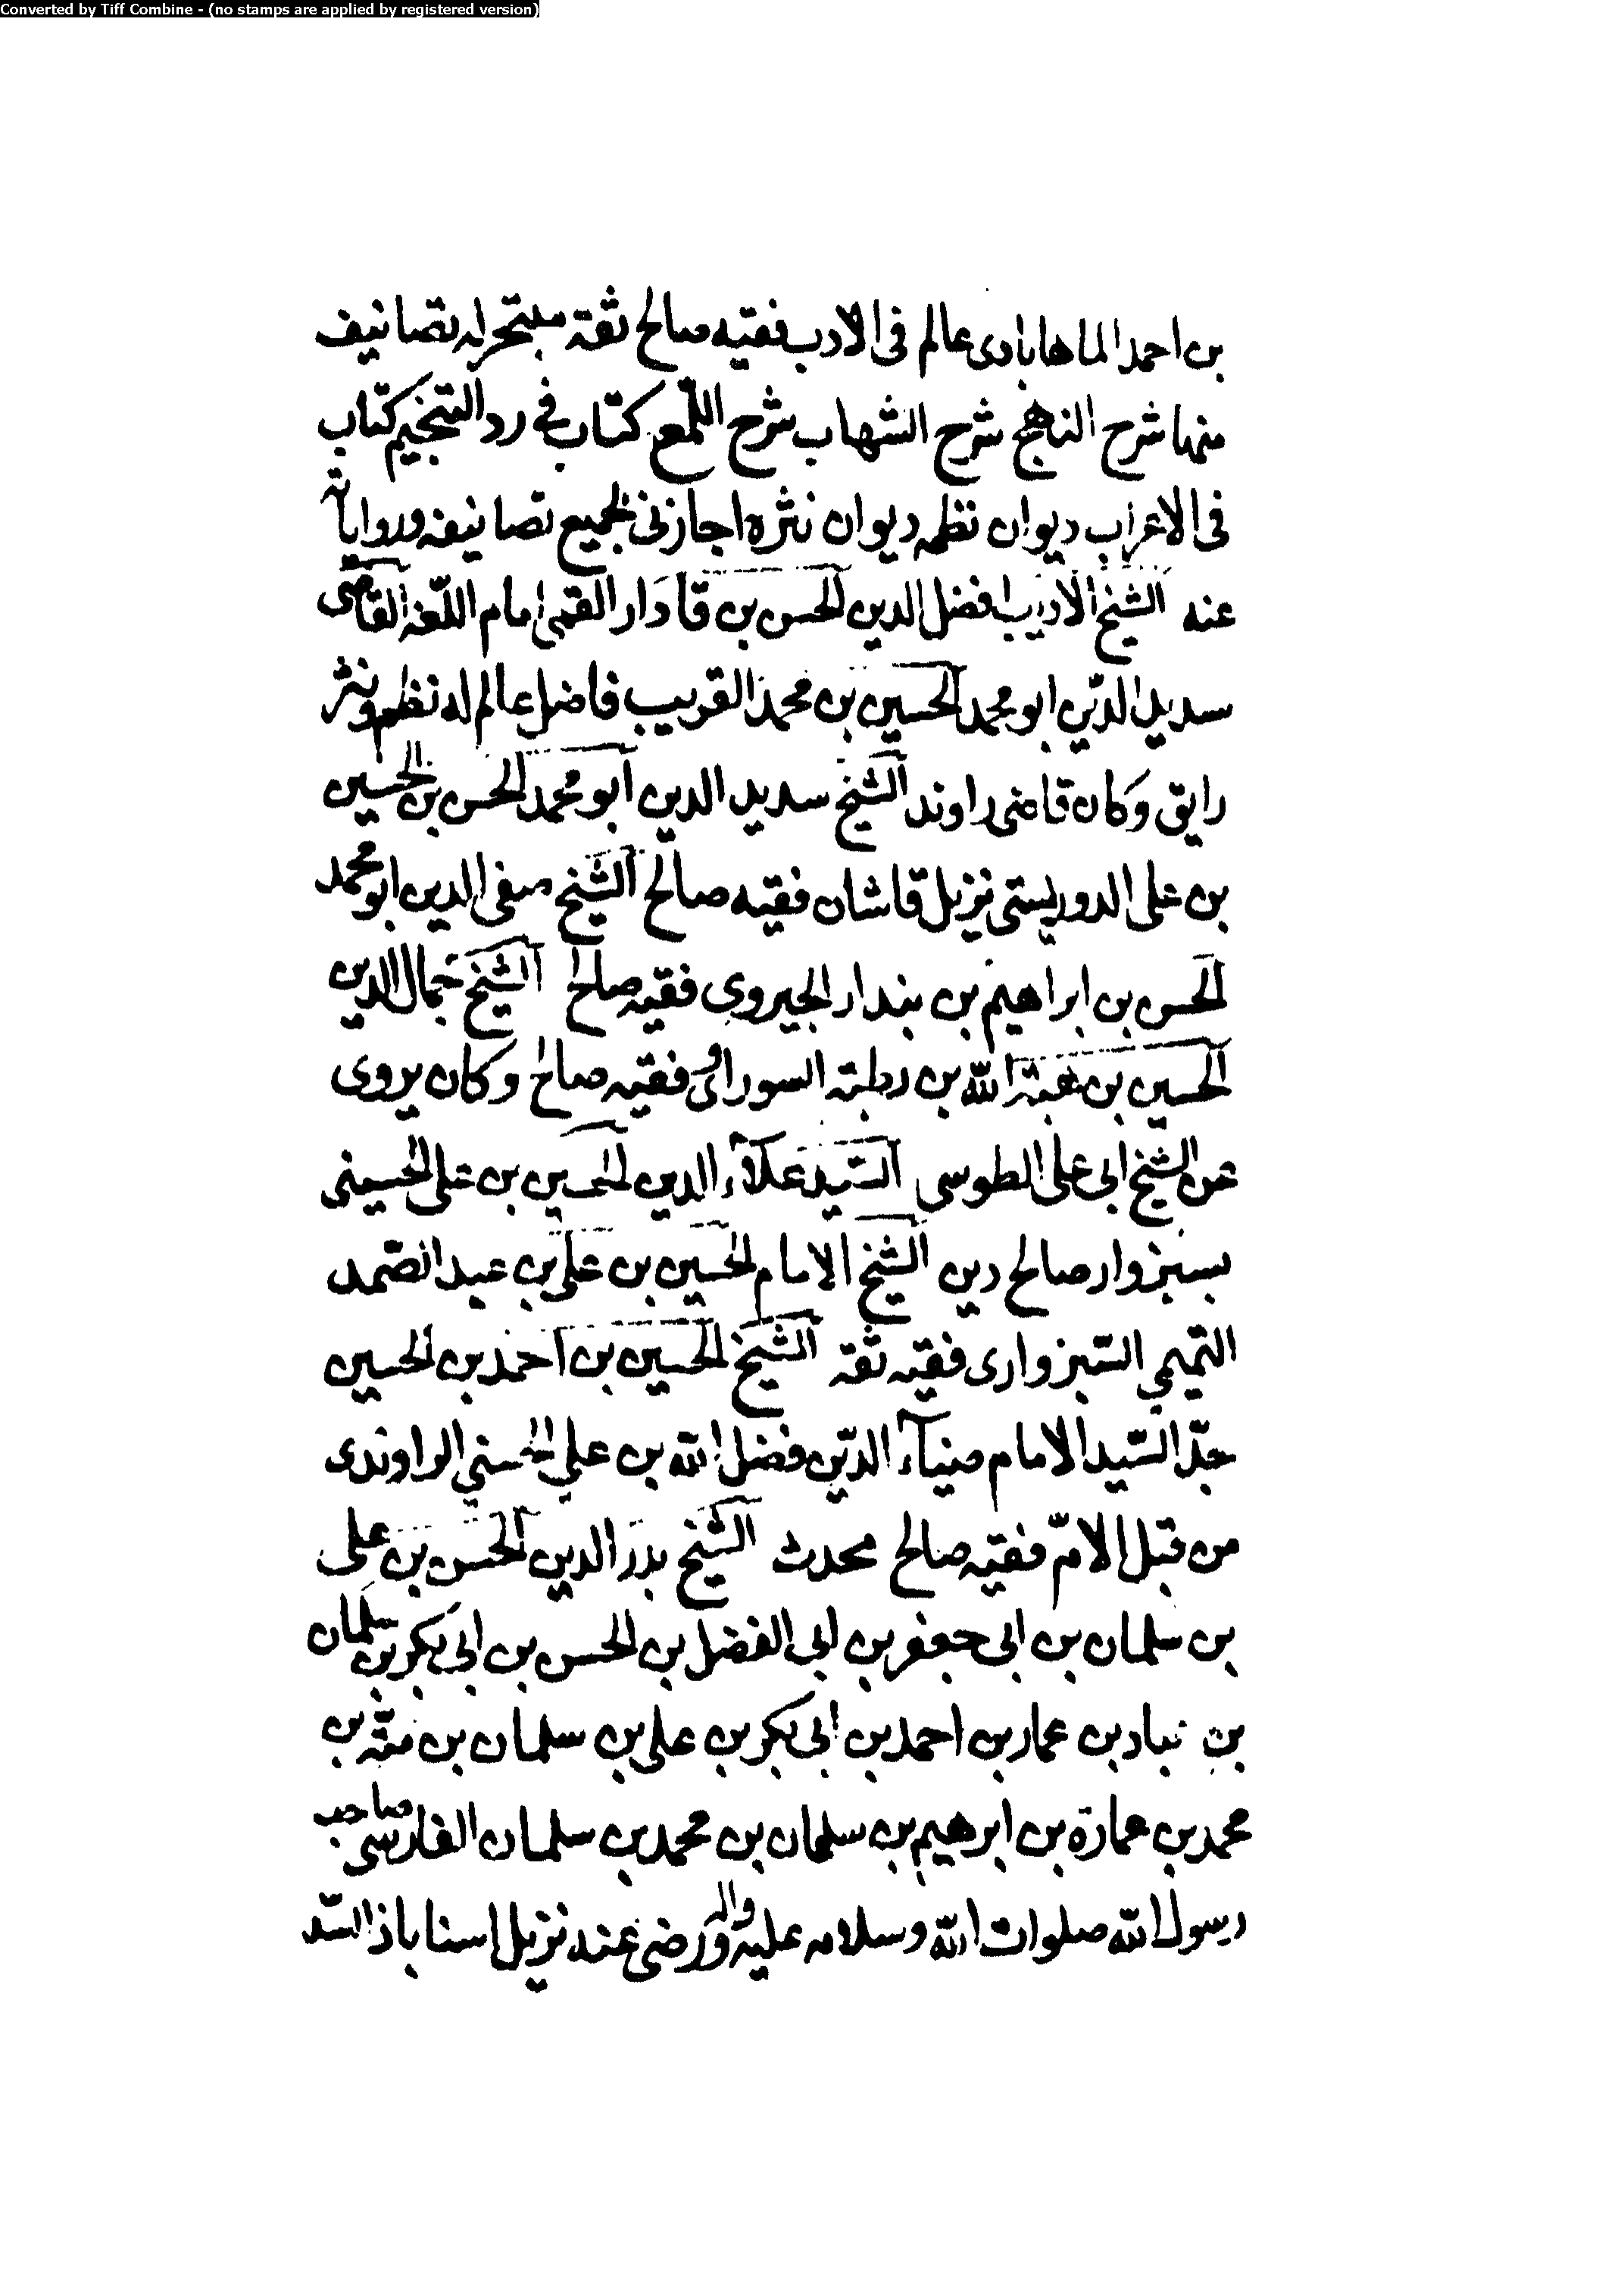 Converted by Tiff Combine - (no stamps are applied by registered version)
بن احمد الماهابادى عالم فى الادب فقيه صالح ثقة متبحر له تصانيف
منها شرح النهج شرح الشهاب شرح اللمع كتاب فى رد التنجيم كتاب
فى الاعراب ديوان نظمه ديوان نثره اجازنى بجميع تصانيفه ورواياته
عنه الشيخ الاديب افضل الدين الحسن بن قادار القمى امام اللغة القاضى
سديد الدين ابو محمد الحسين بن محمد القريب فاضل عالم له نظم ونثر
رايق وكان قاضى راوند الشيخ سديد الدين ابو محمد الحسن بن الحسين
بن على الدوريستى نزيل قاشان فقيه صالح الشيخ صفى الدين ابو محمد
الحسن بن ابراهيم بن بندار الجيروى فقيه صالح الشيخ جمال الدين
الحسين بن هبة الله بن رطبة السوراوى فقيه صالح وكان يروى
عن الشيخ ابى على الطوسى السّيد علاء الدين الحسين بن على الحسينى
بسبزوار صالح دين الشيخ الامام الحسين بن على بن عبد الصّمد
التميمي السّبزوارى فقيه ثقة الشيخ الحسين بن احمد بن الحسين
جدّ السّيد الامام ضياء الدّين فضل الله بن علي الحسني الراوندى
من قبل الامّ فقيه صالح محدث الشيخ بدر الدين الحسن بن على
بن سلمان بن ابى جعفر بن ابى الفضل بن الحسن بن ابى بكر بن سلمان
بن عباد بن عمار بن احمد بن ابى بكر بن على بن سلمان بن منّه بن
محمد بن عمارة بن ابرهيم بن سلمان بن محمد بن سلمان الفارسى صاحب
رسول الله صلوات الله وسلامه عليه واله ورضى عنه نزيل اسناباذ السّد